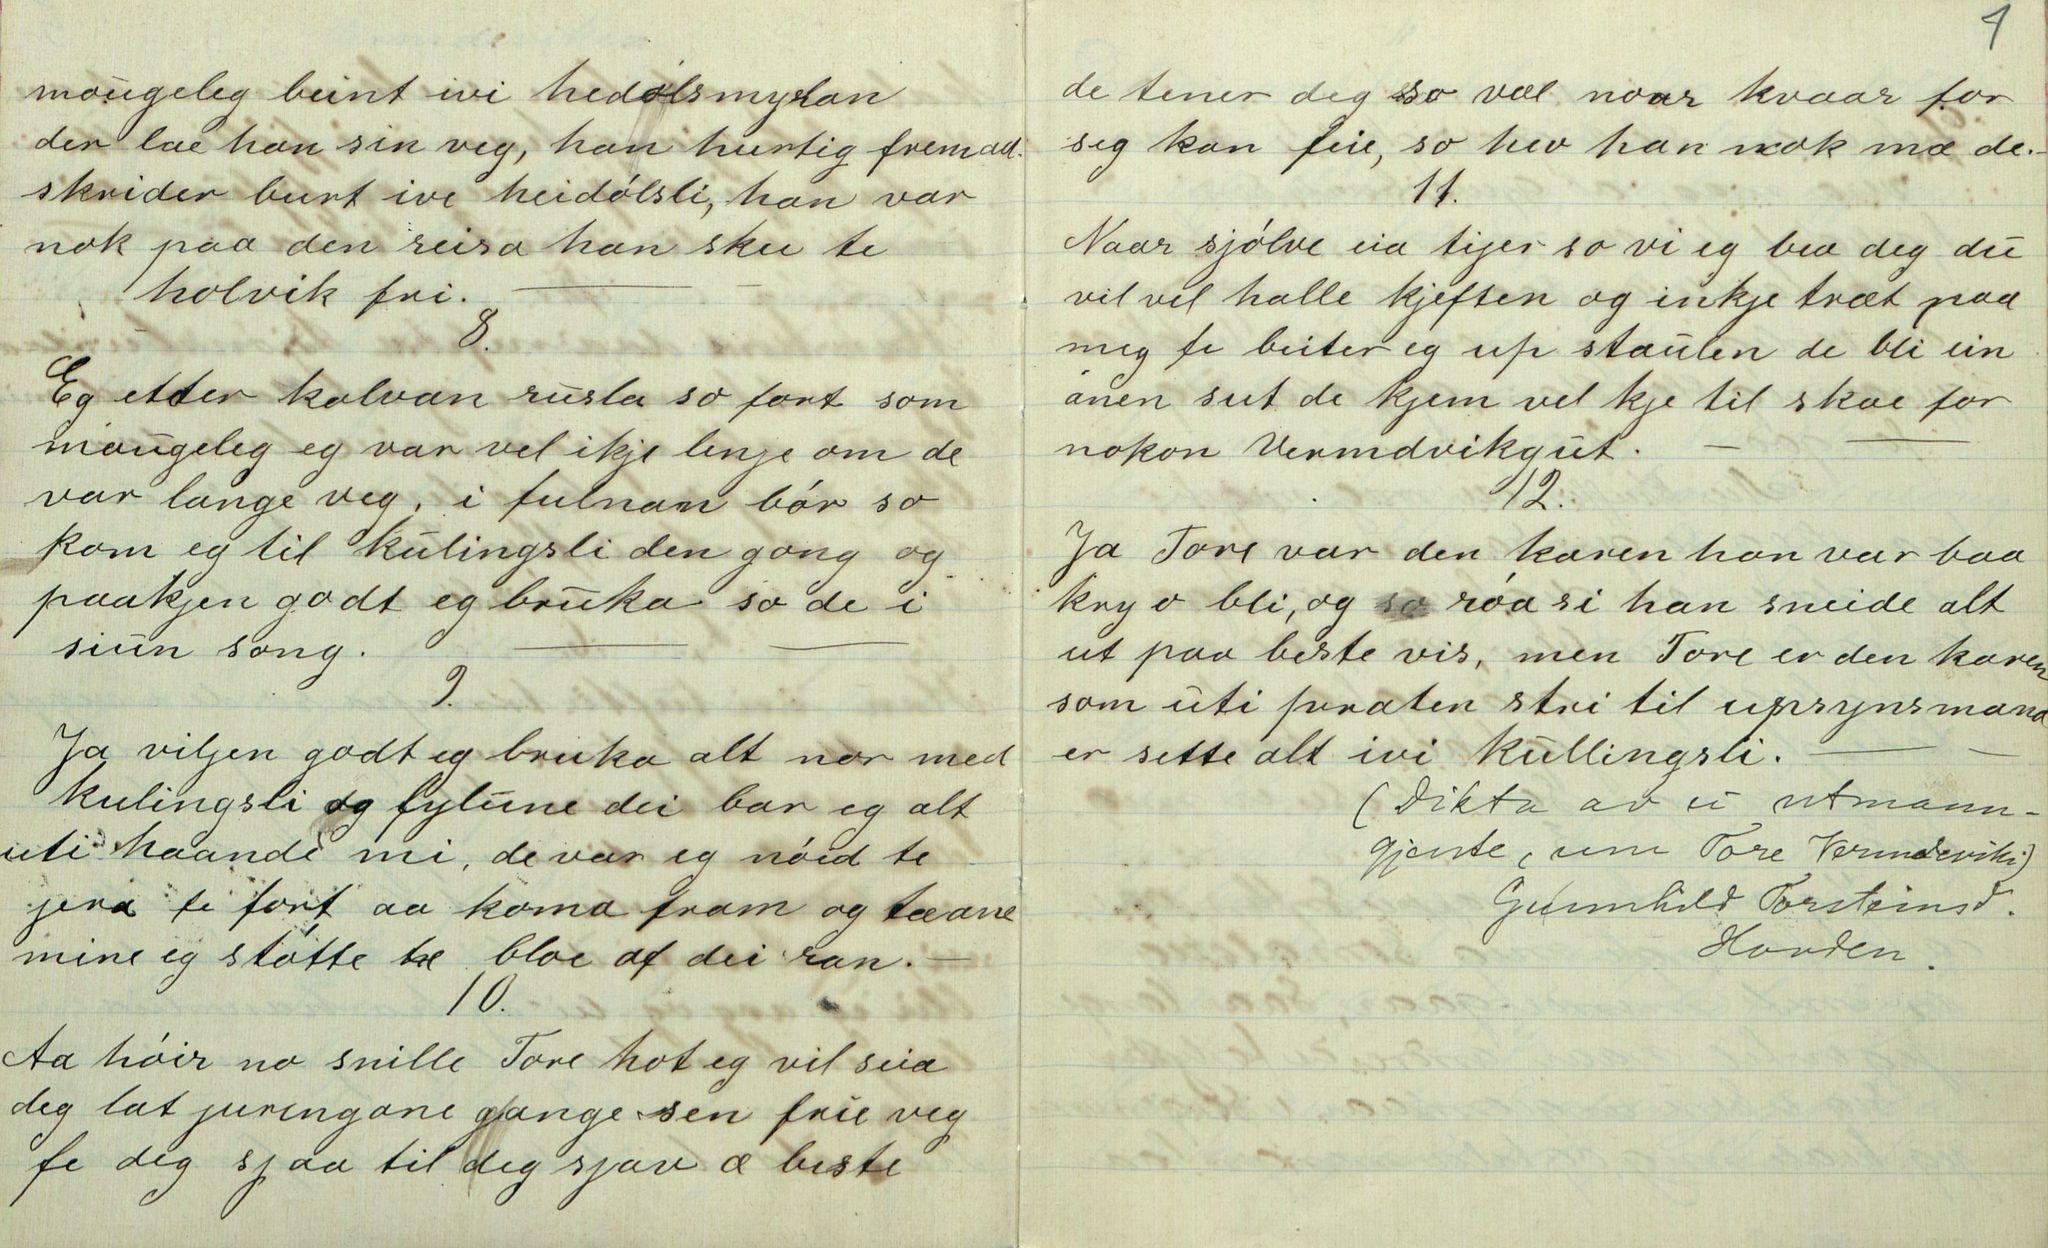 moŭgeleg beint ivi hedólsmyran
der lae han sin veg, han hurtig fremad.
skrider burt ive heidólsli, han var
nok paa den reisa han sku te
holvik fri.
8.
Eg etter kalvan rŭsla so fort som
moŭgeleg eg var vel ikje lenje om de
var lange veg, i fulnan bór so
kom eg til Kŭlingsli den gong og
paakjen godt eg brŭka so de i
siŭn song.
9.
Ja viljen godt eg bruka alt nor med
Kulingsli og fylŭne dei bar eg alt
uti haande mi, de var eg nóid te
jera fe fort aa koma fram og tæane
mine eg stótte te bloe af dei ran.
10.
Aa hóir no snille Tore hot eg vil seia
deg lat juringane gange sen frie veg
fe deg sjaa til deg sjav æ beste
4
de tener deg so væl naar kvaar for
seg kan feie, so hev han nok mæ de.
11.
Naar sjólve eia tijer so vi eg bea deg dŭ
vil vel halle kjeften og inkje træt paa
meg fe beiter eg up staŭlen de bli ein
ánen sut de kjem vel kje til skae for
nokon Vermdvikgŭt.
12.
Ja Tore var den karen han var baa
kry o bli, og so róa si han sneide alt
ut paa beste vis, men Tore er den karen
som ŭti praten stri til upsynsmand
er sette alt ivi Kŭllingsli.
(Dikta av ei utmann-
gjente, um Tore Vermdeviki)
Gunnhild Torsteinsd.
Horden.